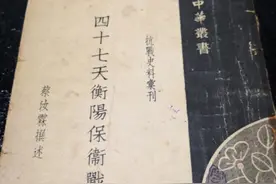 中華叢書
抗戰史料彙刊
四十七天衡陽保衛戰
蔡汝霖撰述